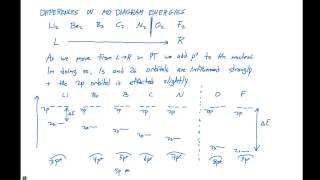 DIFFERENCES IN MO DIAGRAM ENERGIES
Li₂ Be₂ B₂ C₂ N₂ | O₂ F₂
L R
As we move from L→R in PT we add p⁺ to the nucleus.
In doing so, 1s and 2s orbitals are influenced strongly
+ the 2p orbital is affected slightly.
Li Be B C N O F
2p
ΔE ΔE
2s
3p⁺ 4p⁺ 5p⁺ 6p⁺ 7p⁺ 8p⁺ 9p⁺